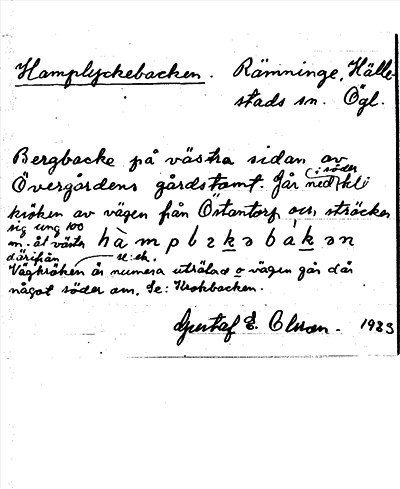 Hamplyckebacken. Rämninge, Hälle-
stads sn. Ögl.
Bergbacke på västra sidan av
Övergårdens gårdstomt. Går ned i söder
kröken av vägen från Östantorp och sträcker
sig ung 100
m. åt väster
därifrån
Vägkröken är numera uträtad o vägen går där
något söder om. Se: Krokbacken.
Gustaf E. Olsson. 1933